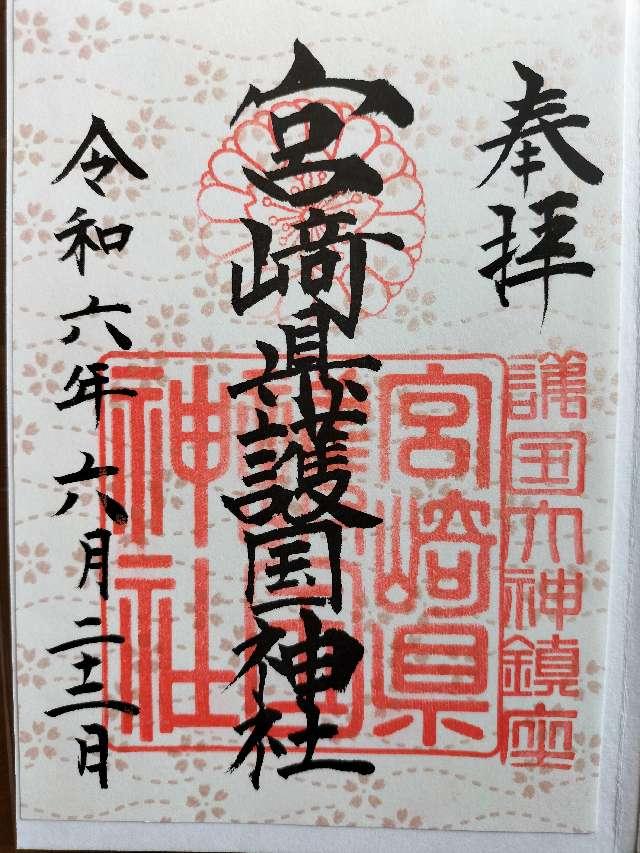 奉拝
護国大神鎮座
宮崎県護国神社
宮崎県
護国
神社
令和六年六月二十二日